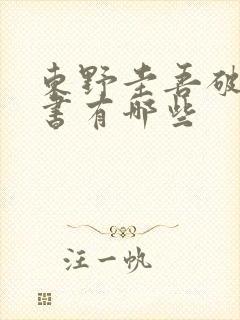 东野圭吾破
书有哪些
汪一帆